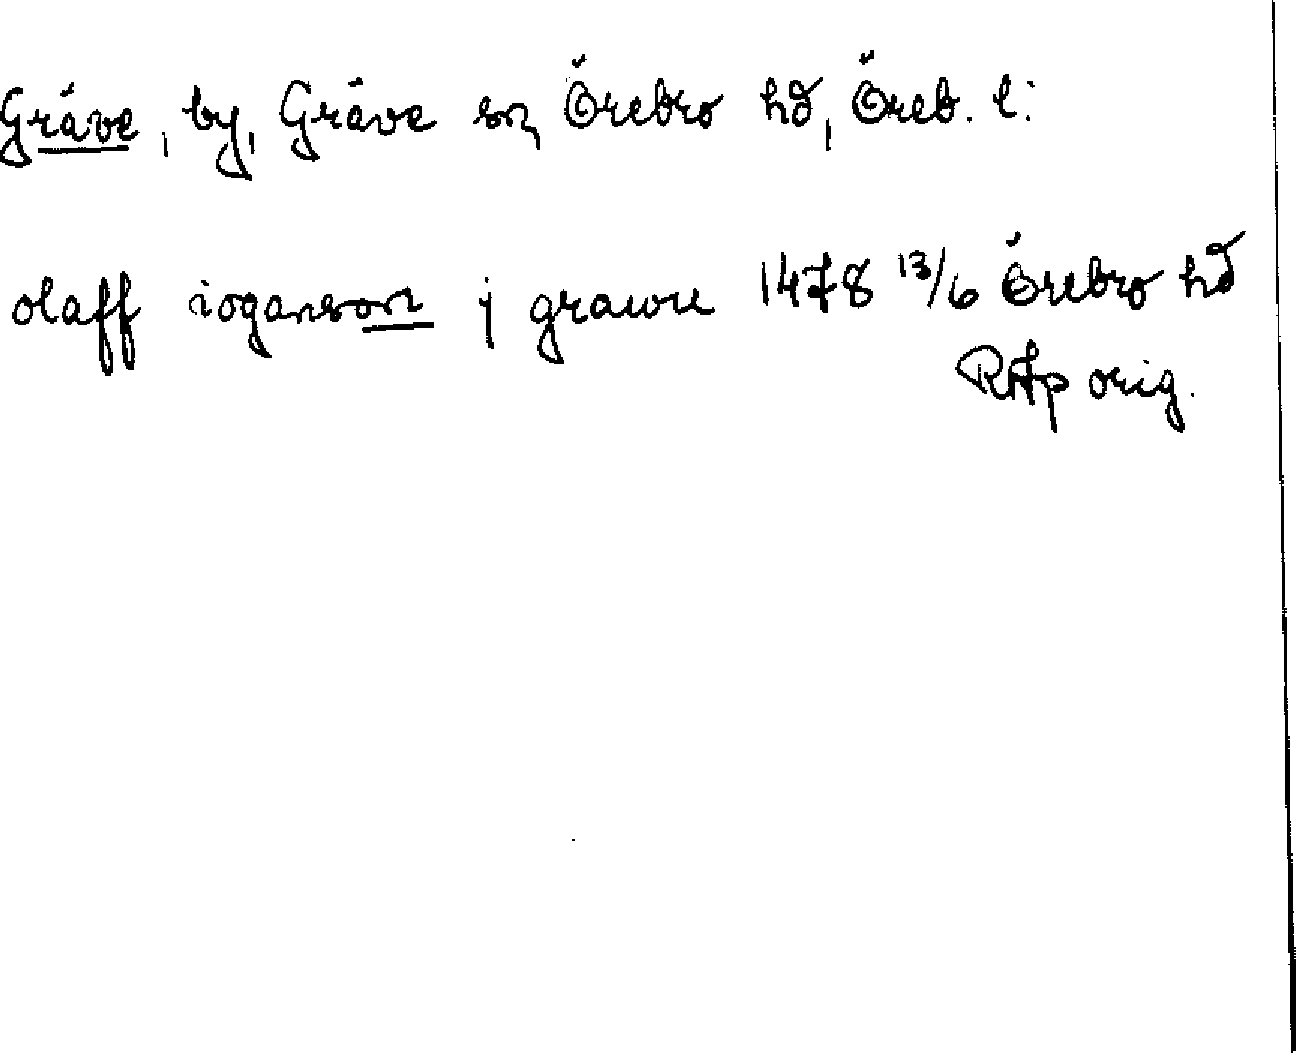 Gräve, by, Gräve sn, Örebro hd, Öreb. l.
olaff ioganson j grawe 1478 13/6 Örebro hd
RAp orig.